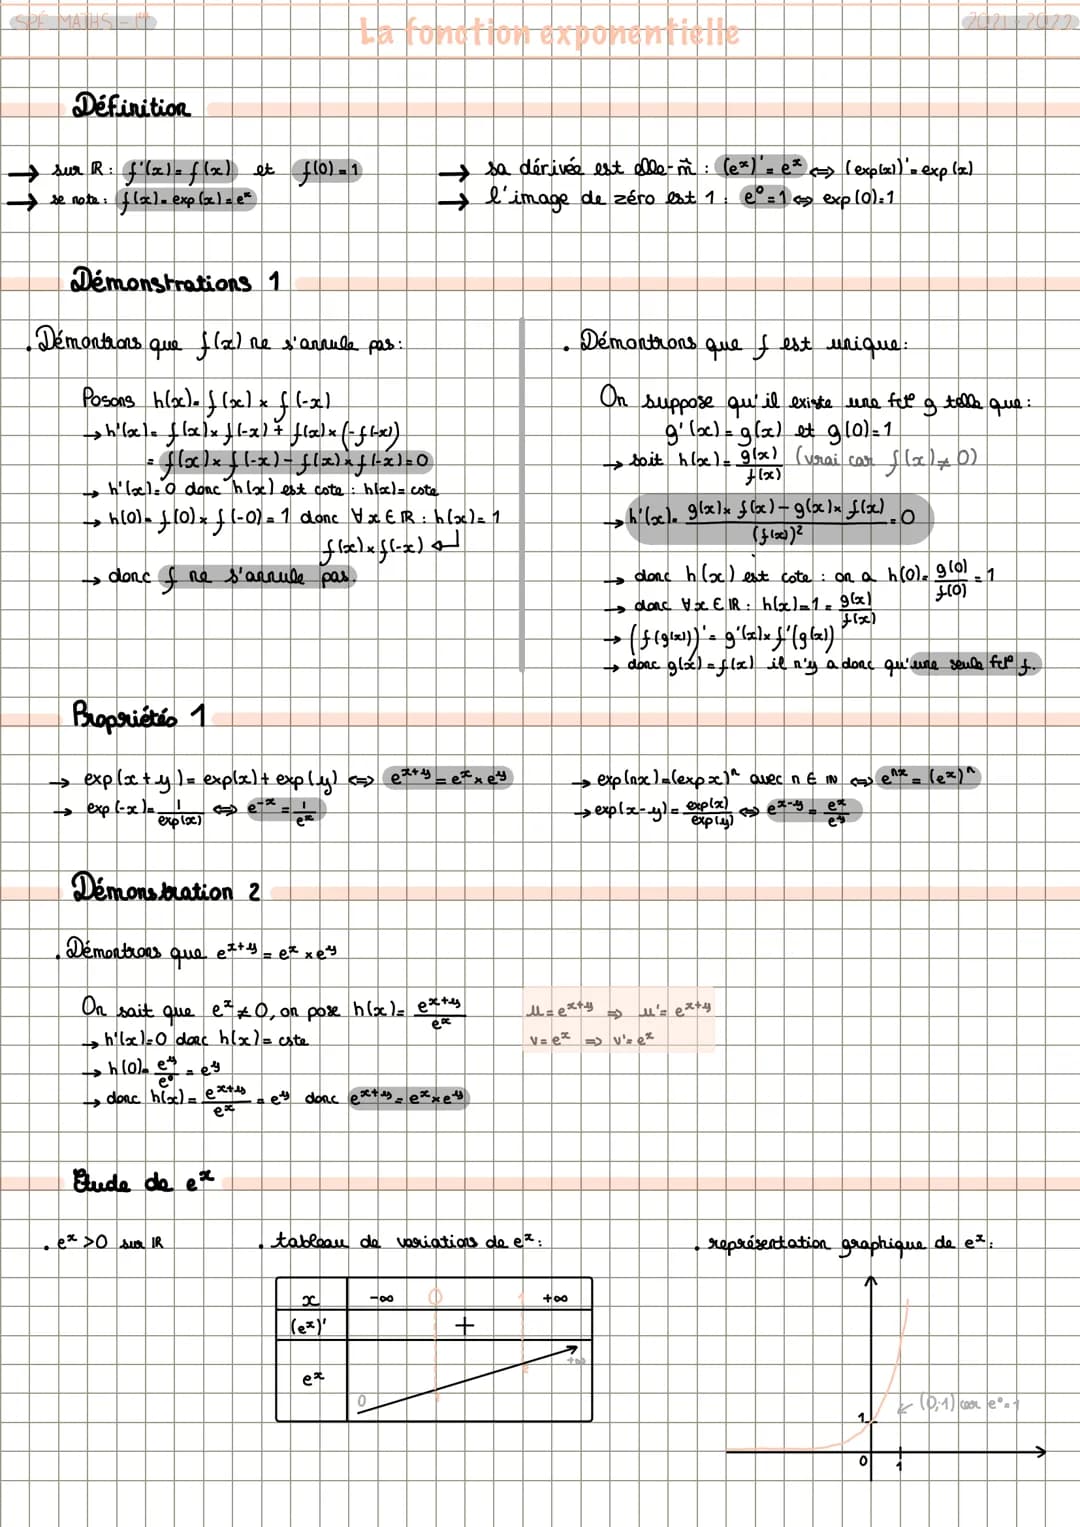 SPÉ MATHS - 1ère
La fonction exponentielle
2021-2022
Définition
→ sur ℝ : f'(x) = f(x) et f(0) = 1
→ se note : f(x) = exp(x) = eˣ
→ sa dérivée est elle-m̂ : (eˣ)' = eˣ ⇔ (exp(x))' = exp(x)
→ l'image de zéro est 1 : e⁰ = 1 ⇔ exp(0) = 1
Démonstrations 1
. Démontrons que f(x) ne s'annule pas :
Posons h(x) = f(x) × f(-x)
→ h'(x) = f(x) × f(-x) + f(x) × (-f(-x))
= f(x) × f(-x) - f(x) × f(-x) = 0
→ h'(x) = 0 donc h(x) est cste : h(x) = cste
→ h(0) = f(0) × f(-0) = 1 donc ∀x ∈ ℝ : h(x) = 1
f(x) × f(-x) ↵
→ donc f ne s'annule pas.
. Démontrons que f est unique :
On suppose qu'il existe une fct° g telle que :
g'(x) = g(x) et g(0) = 1
→ soit h(x) = g(x)/f(x) (vrai car f(x) ≠ 0)
→ h'(x) = (g(x) × f(x) - g(x) × f(x))/(f(x))² = 0
→ donc h(x) est cste : on a h(0) = g(0)/f(0) = 1
→ donc ∀x ∈ ℝ : h(x) = 1 = g(x)/f(x)
→ (f(g(x)))' = g'(x) × f'(g(x))
→ donc g(x) = f(x) il n'y a donc qu'une seule fct° f.
Propriétés 1
→ exp(x+y) = exp(x) + exp(y) ⇔ eˣ⁺ʸ = eˣ × eʸ
→ exp(-x) = 1/exp(x) ⇔ e⁻ˣ = 1/eˣ
→ exp(nx) = (exp x)ⁿ avec n ∈ ℕ ⇔ eⁿˣ = (eˣ)ⁿ
→ exp(x-y) = exp(x)/exp(y) ⇔ eˣ⁻ʸ = eˣ/eʸ
Démonstration 2
. Démontrons que eˣ⁺ʸ = eˣ × eʸ
On sait que eˣ ≠ 0, on pose h(x) = eˣ⁺ʸ/eˣ
→ h'(x) = 0 donc h(x) = cste
→ h(0) = eʸ/e⁰ = eʸ
→ donc h(x) = eˣ⁺ʸ/eˣ = eʸ donc eˣ⁺ʸ = eˣ × eʸ
u = eˣ⁺ʸ ⇒ u' = eˣ⁺ʸ
v = eˣ ⇒ v' = eˣ
Étude de eˣ
. eˣ > 0 sur ℝ
. tableau de variations de eˣ :
x -∞ 0 1 +∞
(eˣ)' +
eˣ 0 +∞
. représentation graphique de eˣ :
(0;1) car e⁰ = 1
1
0 1